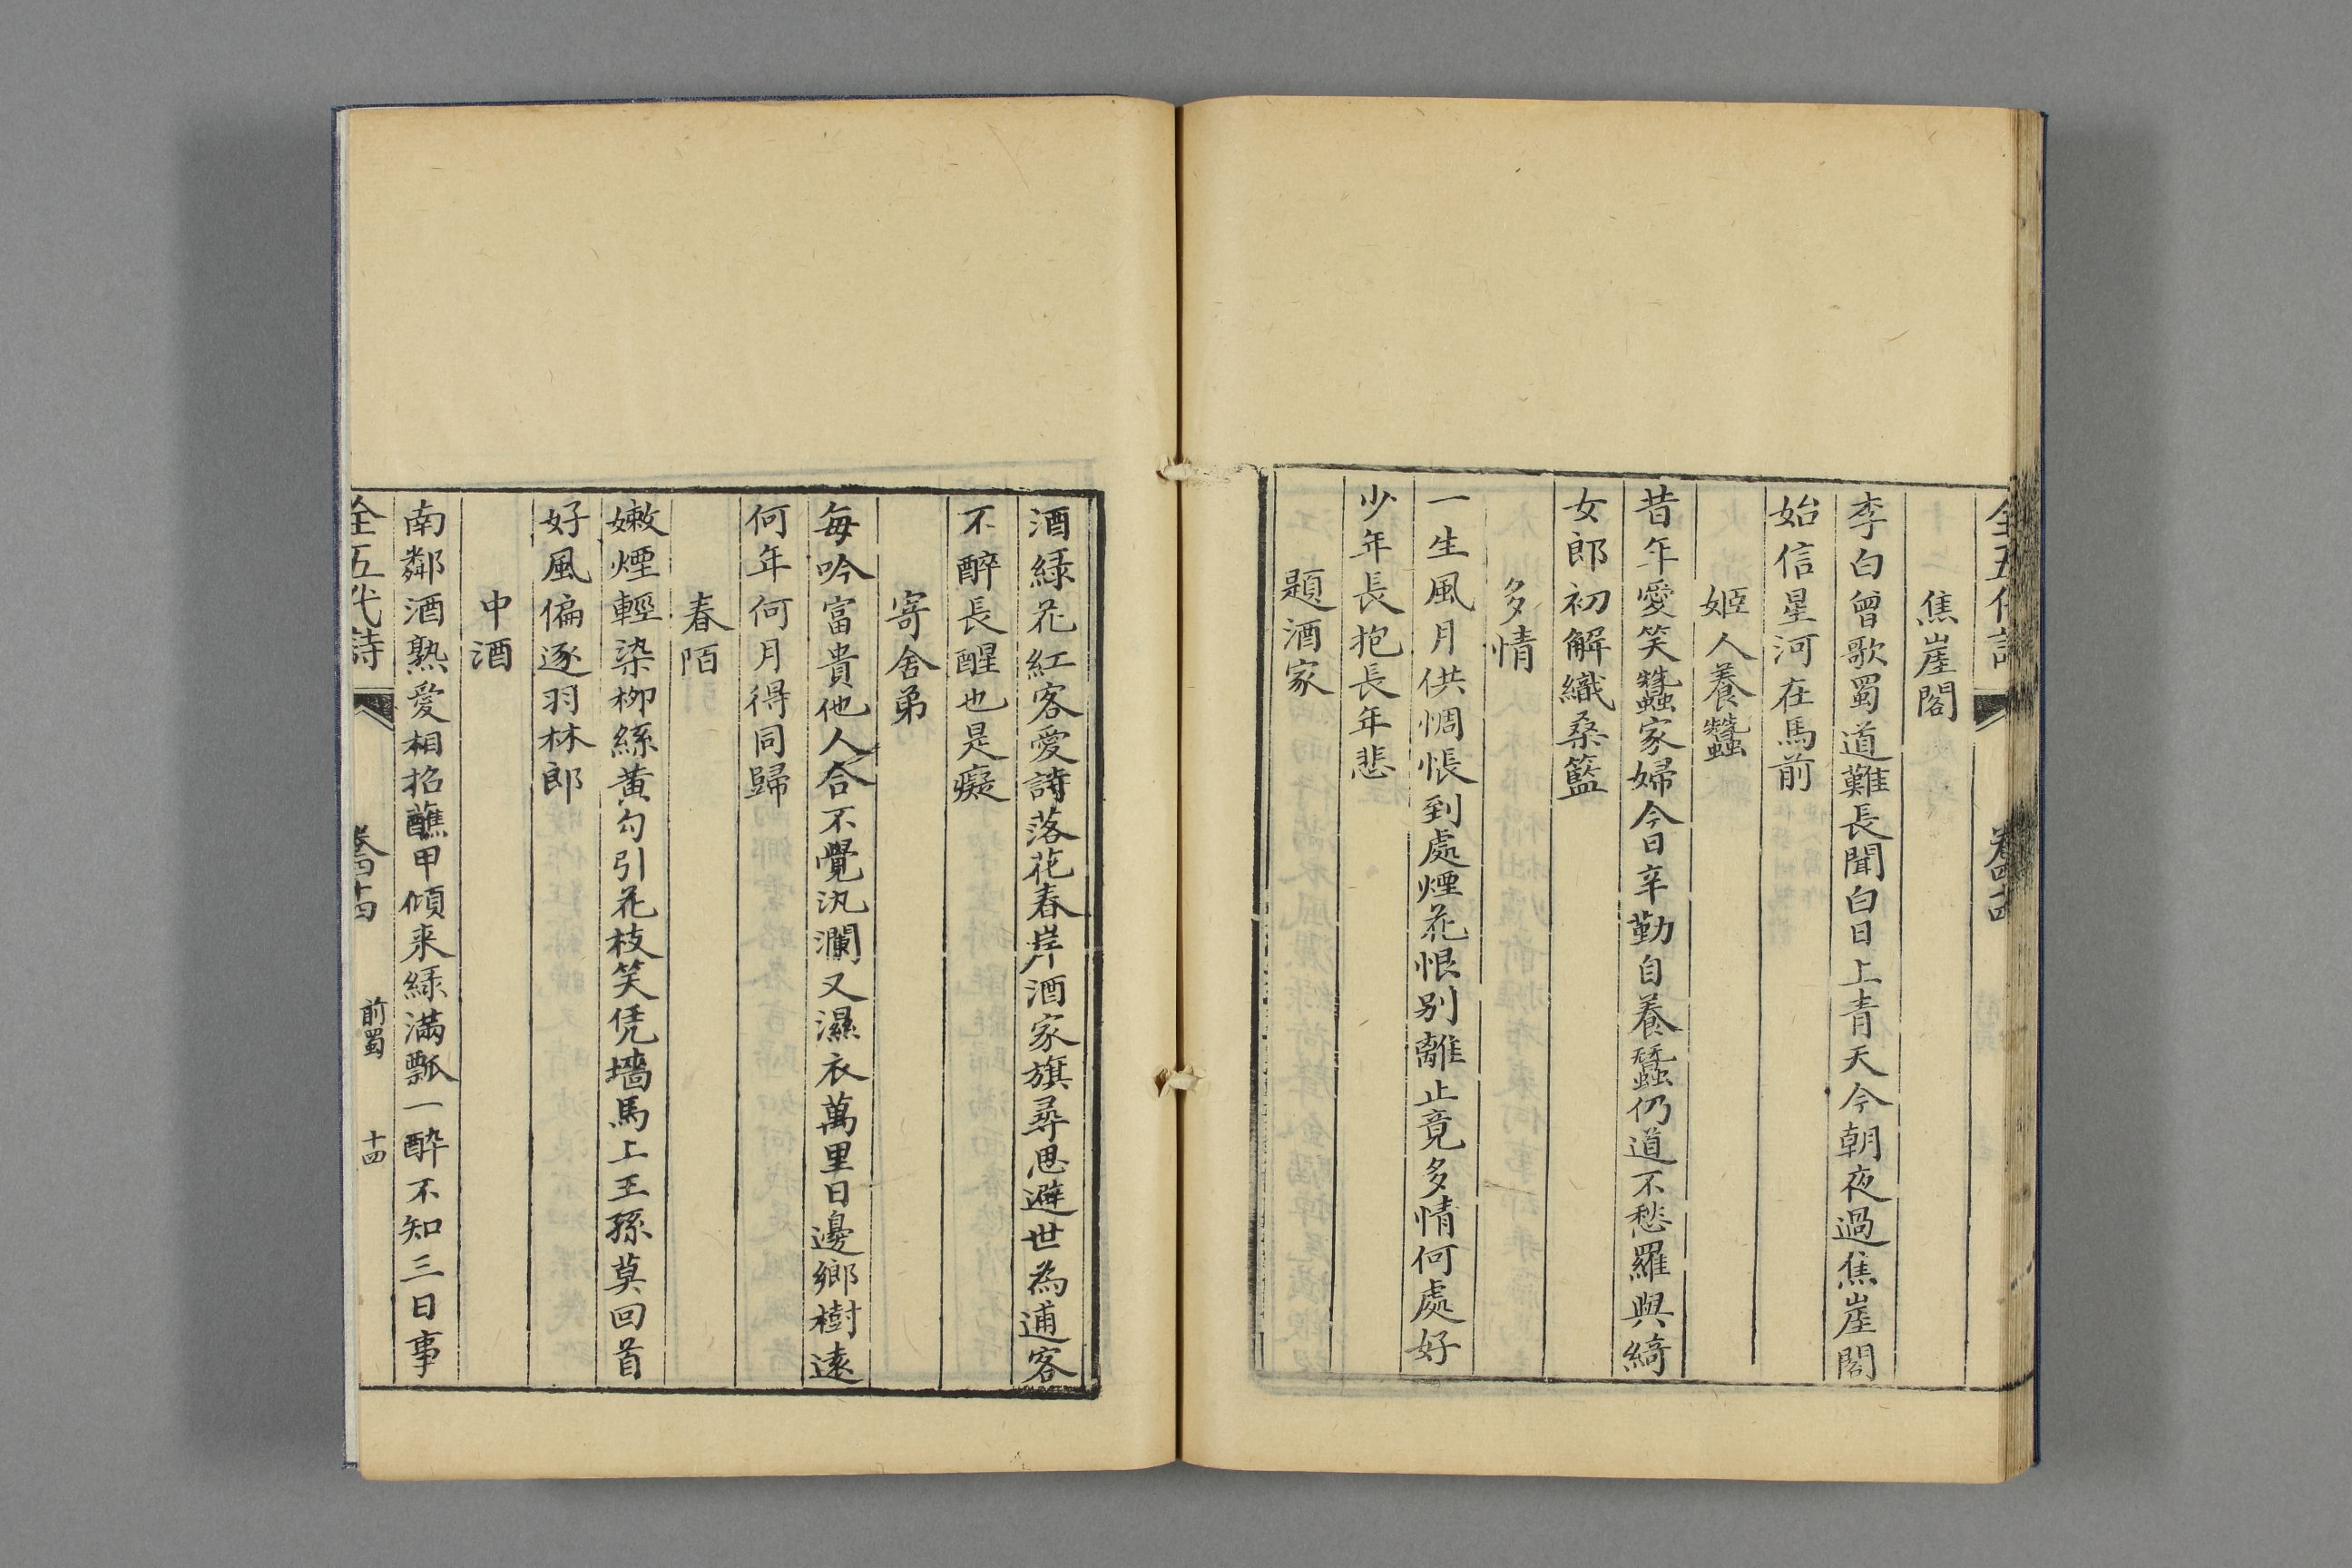 全五代詩
焦崖閣
李白曾歌蜀道難長聞白日上青天今朝夜過焦崖閣
始信星河在馬前
姬人養蠶
昔年愛笑蠶家婦今日辛勤自養蠶仍道不愁羅與綺
女郎初解織桑籃
多情
一生風月供惆悵到處煙花恨别離止竟多情何處好
少年長抱長年悲
題酒家
酒緑花紅客愛詩落花春岸酒家旗尋思避世為逋客
不醉長醒也是癡
寄舍弟
每吟富貴他人合不覺汍瀾又濕衣萬里日邊鄉樹遠
何年何月得同歸
春陌
嫩煙輕染柳絲黄勾引花枝笑凭墻馬上王孫莫回首
好風偏逐羽林郎
中酒
南鄰酒熟愛相招蘸甲傾来緑滿瓢一醉不知三日事
全五代詩 卷四十四 前蜀 十四